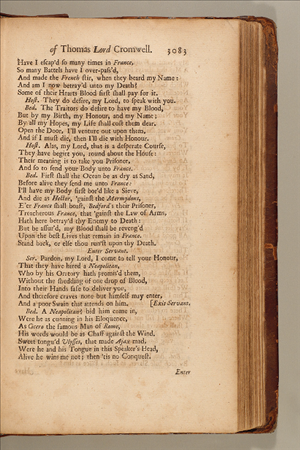 of Thomas Lord Cromwell. 3083
Have I escap'd so many times in France,
So many Battels have I over-pass'd,
And made the French stir, when they heard my Name:
And am I now betray'd unto my Death?
Some of their Hearts Blood first shall pay for it.
Host. They do desire, my Lord, to speak with you.
Bed. The Traitors do desire to have my Blood,
But by my Birth, my Honour, and my Name;
By all my Hopes, my Life shall cost them dear.
Open the Door, I'll venture out upon them,
And if I must die, then I'll die with Honour.
Host. Alas, my Lord, that is a desperate Course,
They have begirt you, round about the House:
Their meaning is to take you Prisoner,
And so to send your Body unto France.
Bed. First shall the Ocean be as dry as Sand,
Before alive they send me unto France:
I'll have my Body first bor'd like a Sieve,
And die as Hector, 'gainst the Mermydons,
E'er France shall boast, Bedford's their Prisoner,
Treacherous France, that 'gainst the Law of Arms,
Hath here betray'd thy Enemy to Death:
But be assur'd, my Blood shall be reveng'd
Upon the best Lives that remain in France.
Stand back, or else thou run'st upon thy Death.
Enter Servant.
Ser. Pardon, my Lord, I come to tell your Honour,
That they have hired a Neapolitan,
Who by his Oratory hath promis'd them,
Without the shedding of one drop of Blood,
Into their Hands safe to deliver you,
And therefore craves none but himself may enter,
And a poor Swain that attends on him. [Exit Servant.
Bed. A Neapolitan? bid him come in,
Were he as cunning in his Eloquence,
As Cicero the famous Man of Rome,
His words would be as Chaff against the Wind.
Sweet tongu'd Ulysses, that made Ajax mad,
Were he and his Tongue in this Speaker's Head,
Alive he wins me not; then 'tis no Conquest.
Enter